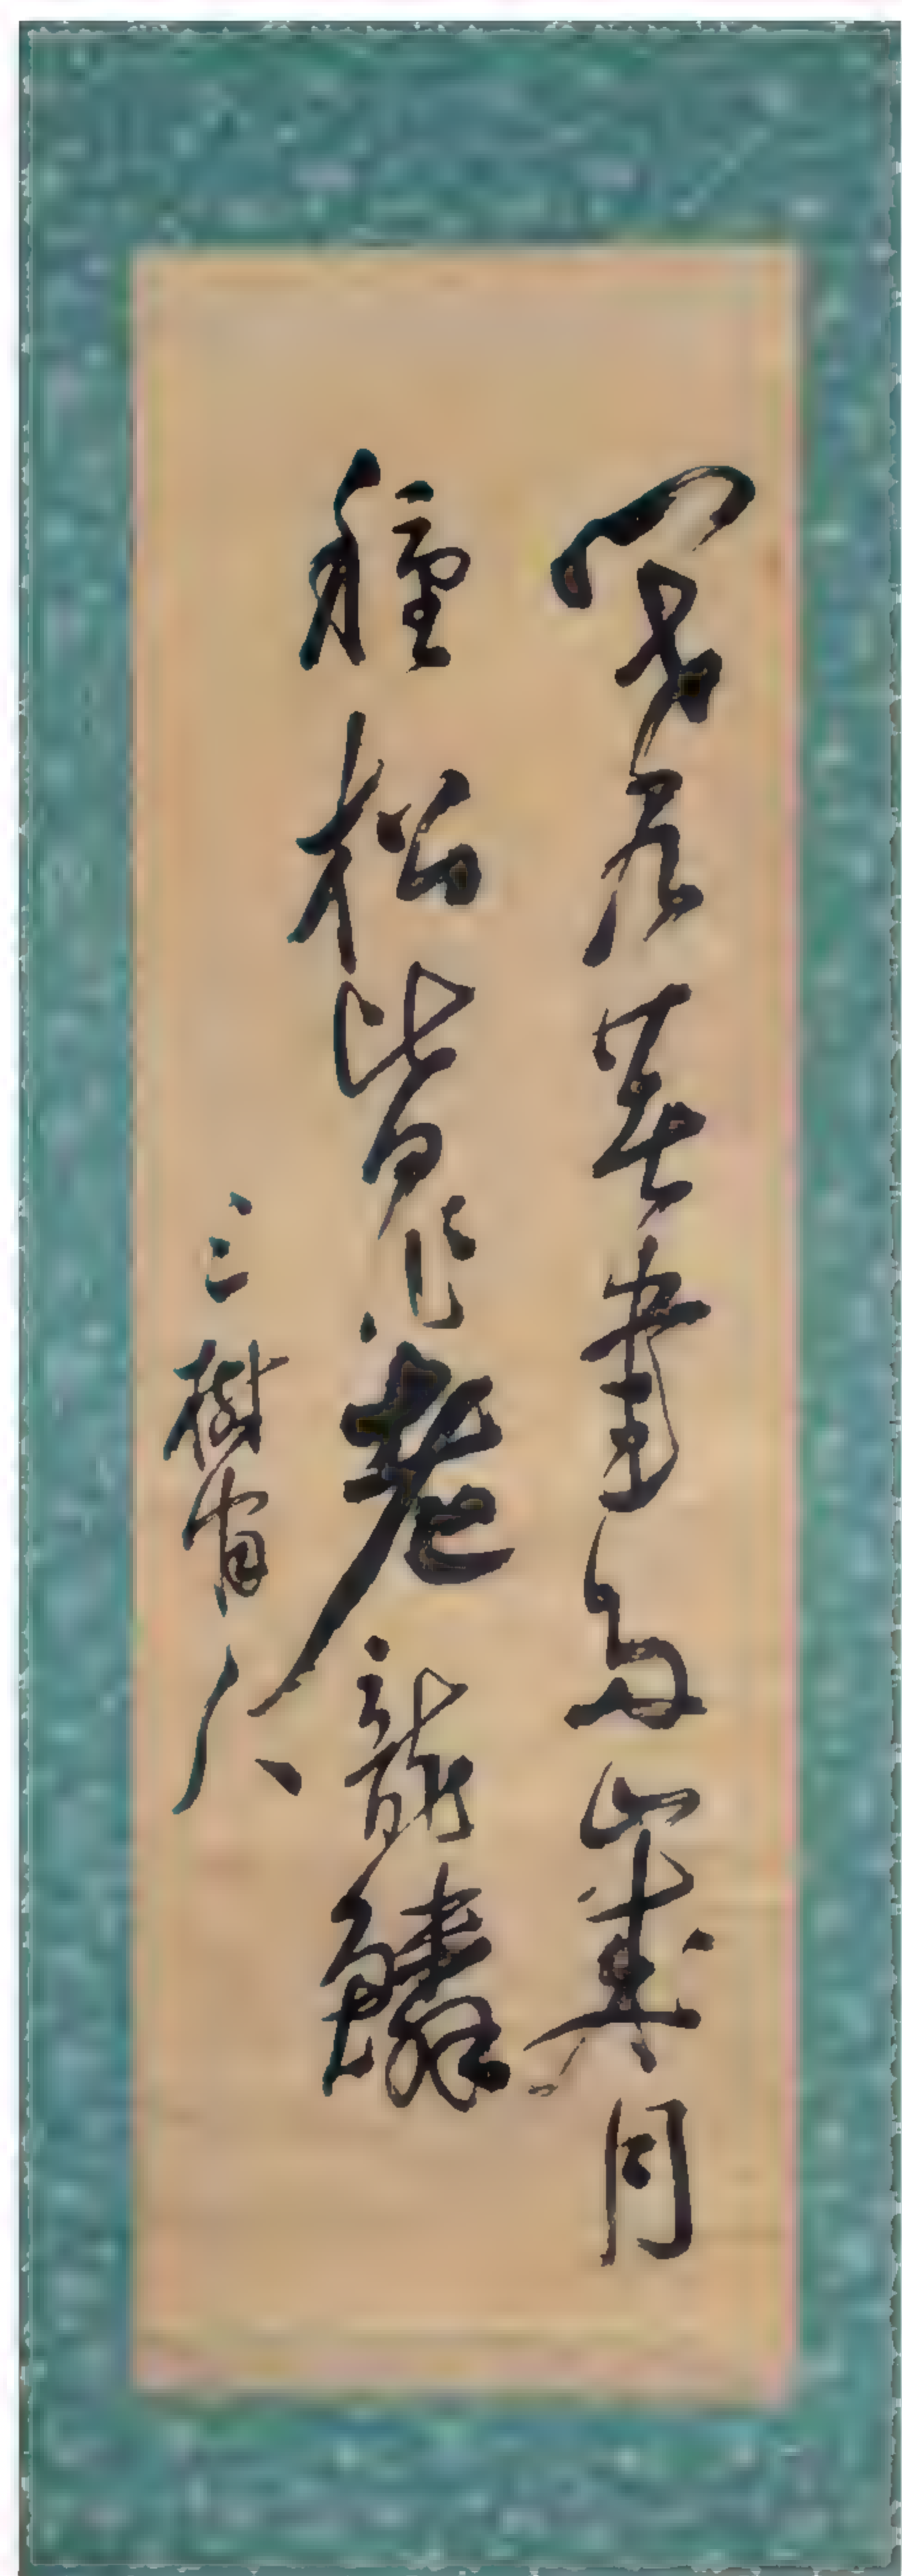 閉戶著書多歲月
種松皆作老龍鱗
三樹人